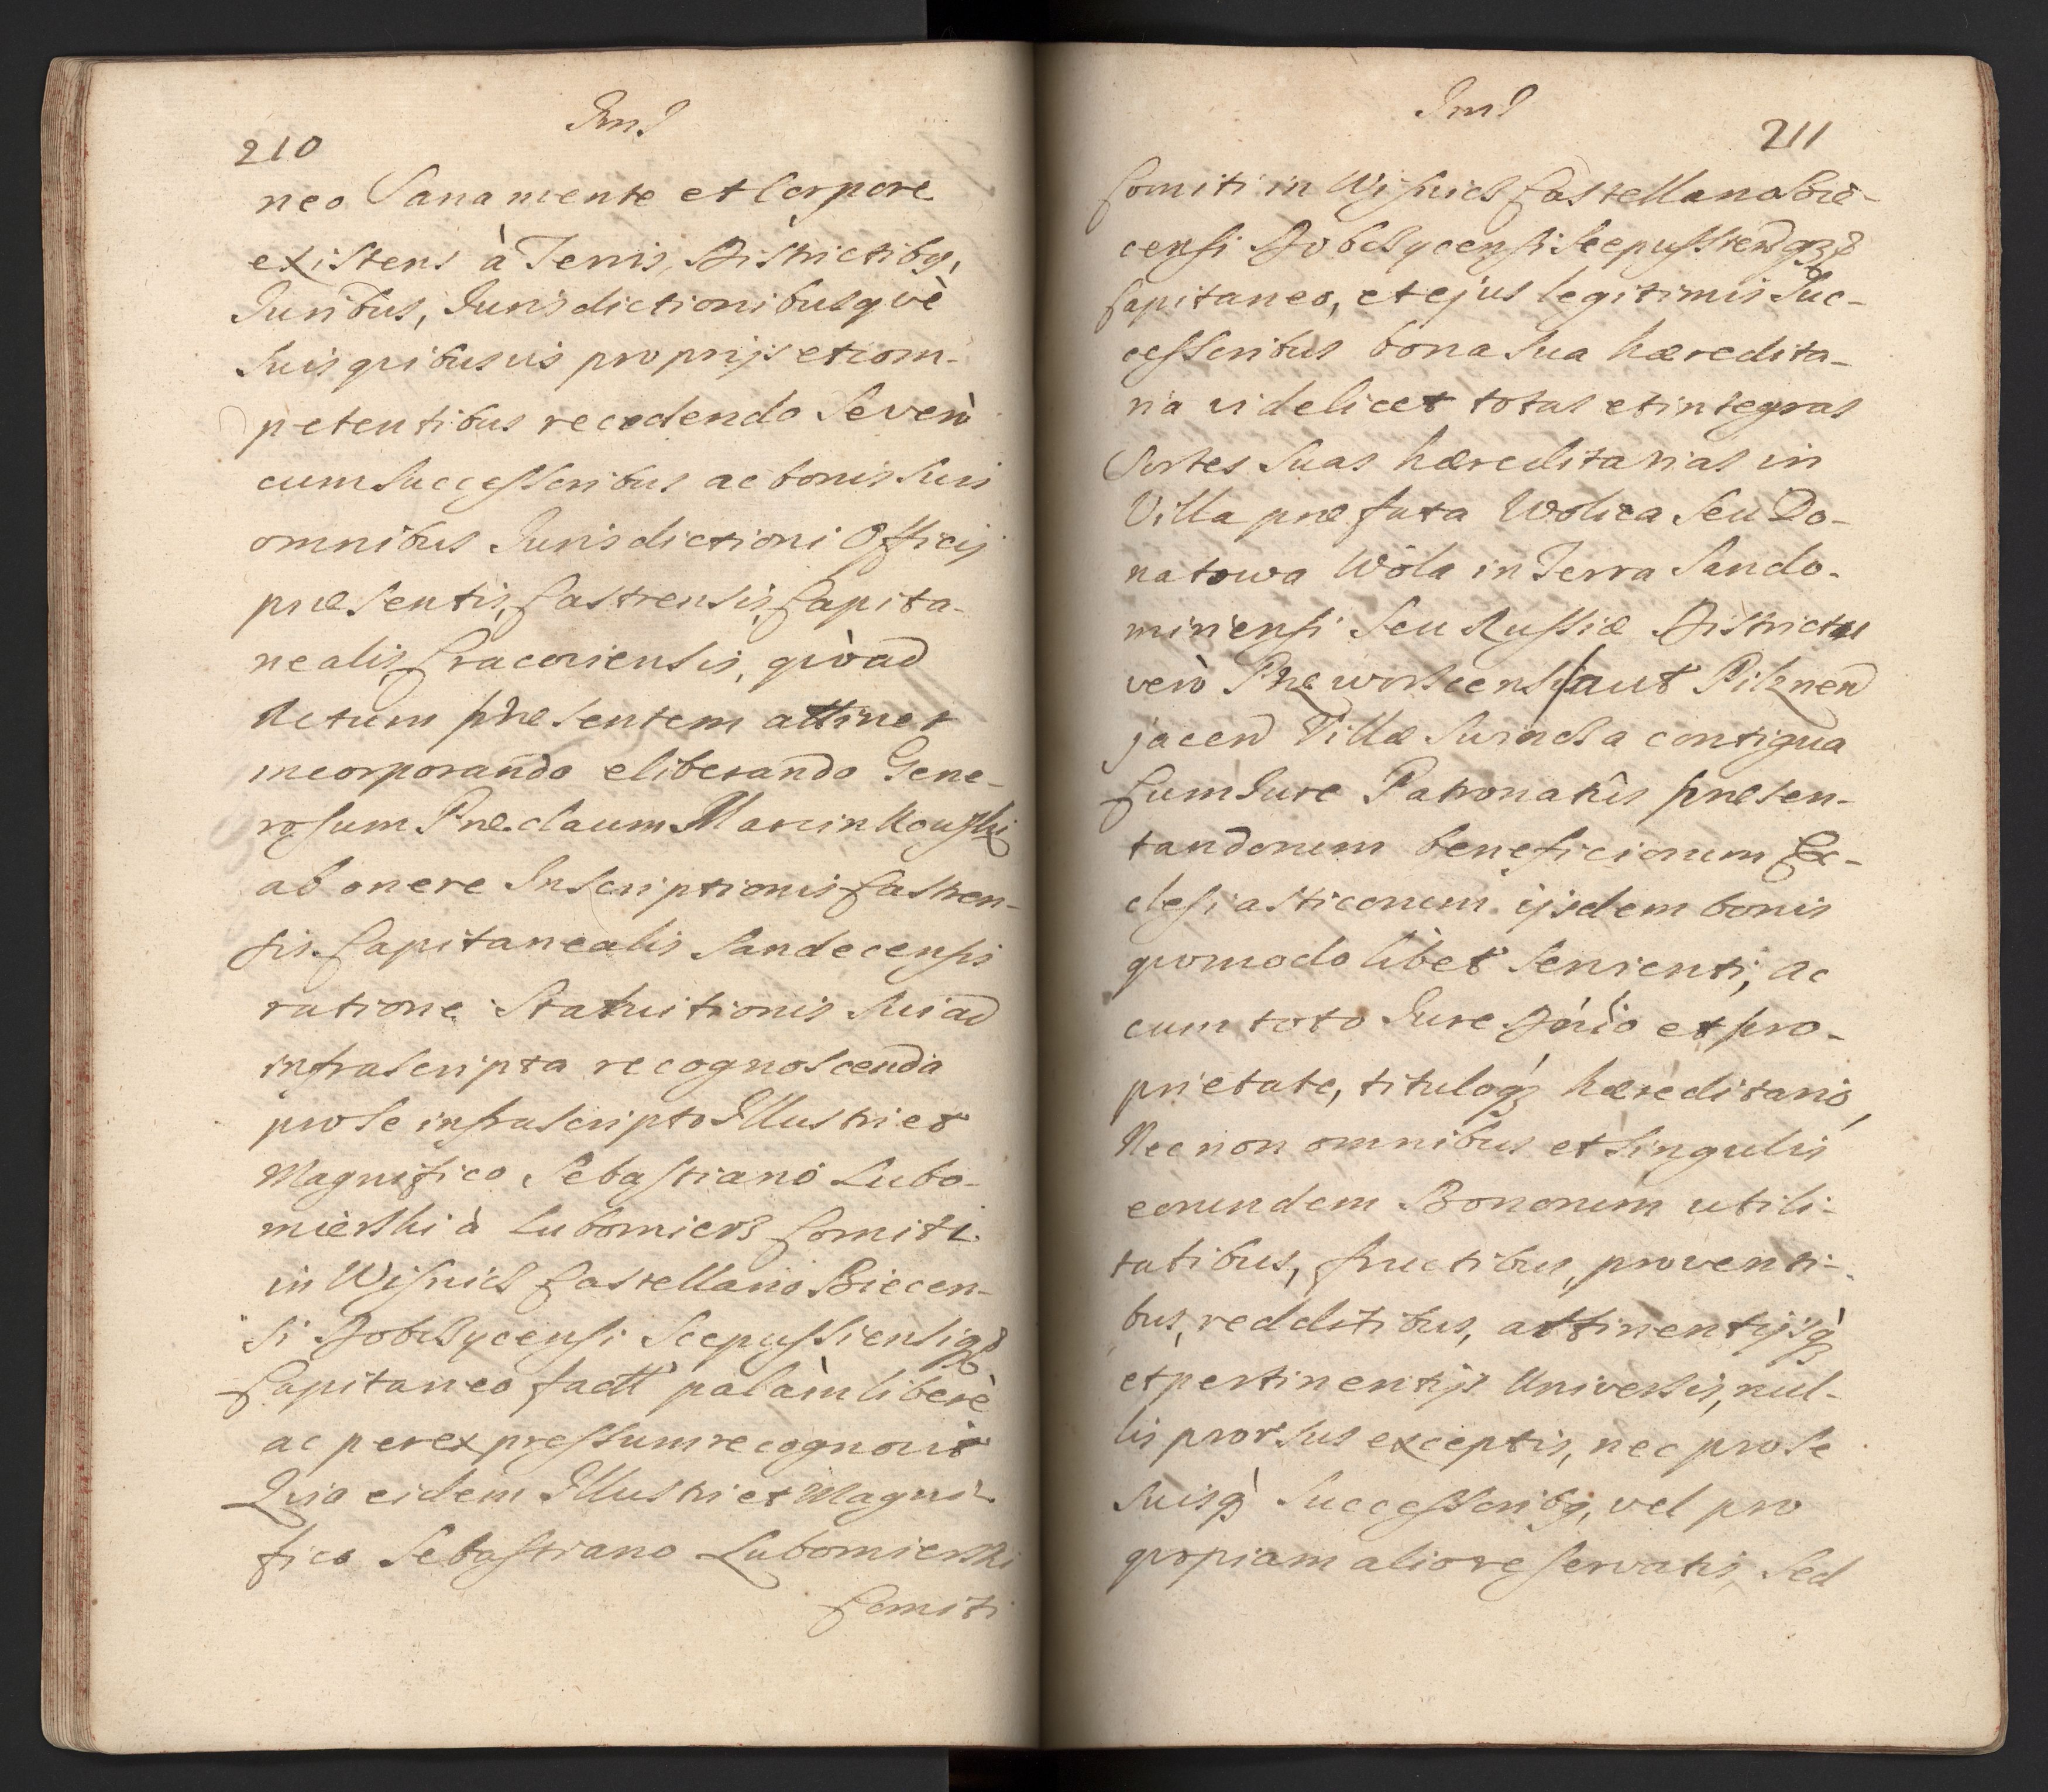 210
neo Sana mente et Corpore
existens à Terris, Districtibq,
Juribus, Jurisdictionibusqvè
Suis qvibusvis proprijs et com-
petentibus recedendo Severò
cum Successoribus ac bonis Suis
omnibus Jurisdictioni Officij
præsentis, Castrensis, Capita-
nealis Cracoviensis, qvòad
Actum præsentem attinet
incorporando eliberando Gene-
rosum Præclaum Marcinkouski
ab onere Inscriptionis Castren-
sis Capitanealis Sandecensis
ratione Statuitionis Sui ad
infrascripta recognoscenda
pro se infrascripto Illustri et
Magnifico Sebastiano Lubo-
mierski à Lubomierz Comiti
in Wisnicz Castellano Biecen-
si Dobczycensi Scepussiensiqz
Capitaneo factt palàm liberè
ac per expressum recognovit
Qvia eidem Illustri et Magni-
fico Sebastiano Lubomierski
Comiti
211
Comiti in Wisnicz Castellano Bie-
censi Dobczycensi Scepussiend qz
Capitaneo, et ejus legitimis Suc-
cessoribus bona sua hæredita-
ria videlicet totas et integras
Sortes Suas hæreditarias in
Villa præfata Wolica Seu Do-
natowa Wola in Terra Sando-
miriensi Seu Russiæ Districtu
verò Przeworscensi aut Pilznend
jacend Villæ Swincza contigua
Cum Jure Patronatûs præsen-
tandorum beneficiorum Ec-
clesiasticorum ijsdem bonis
qvomodolibet Servienti, ac
cum toto Jure Dnio et pro-
prietate, tituloqz hæreditario,
Nec non omnibus et Singulis
eorundem Bonorum utili-
tatibus, fructibus, proventi-
bus, redditibus, attinentijsqz
et pertinentijs Universis, nul-
lis prorsus exceptis, nec pro se
Suisqz Successoribq, vel pro
qvopiam alio reservatis, Sed